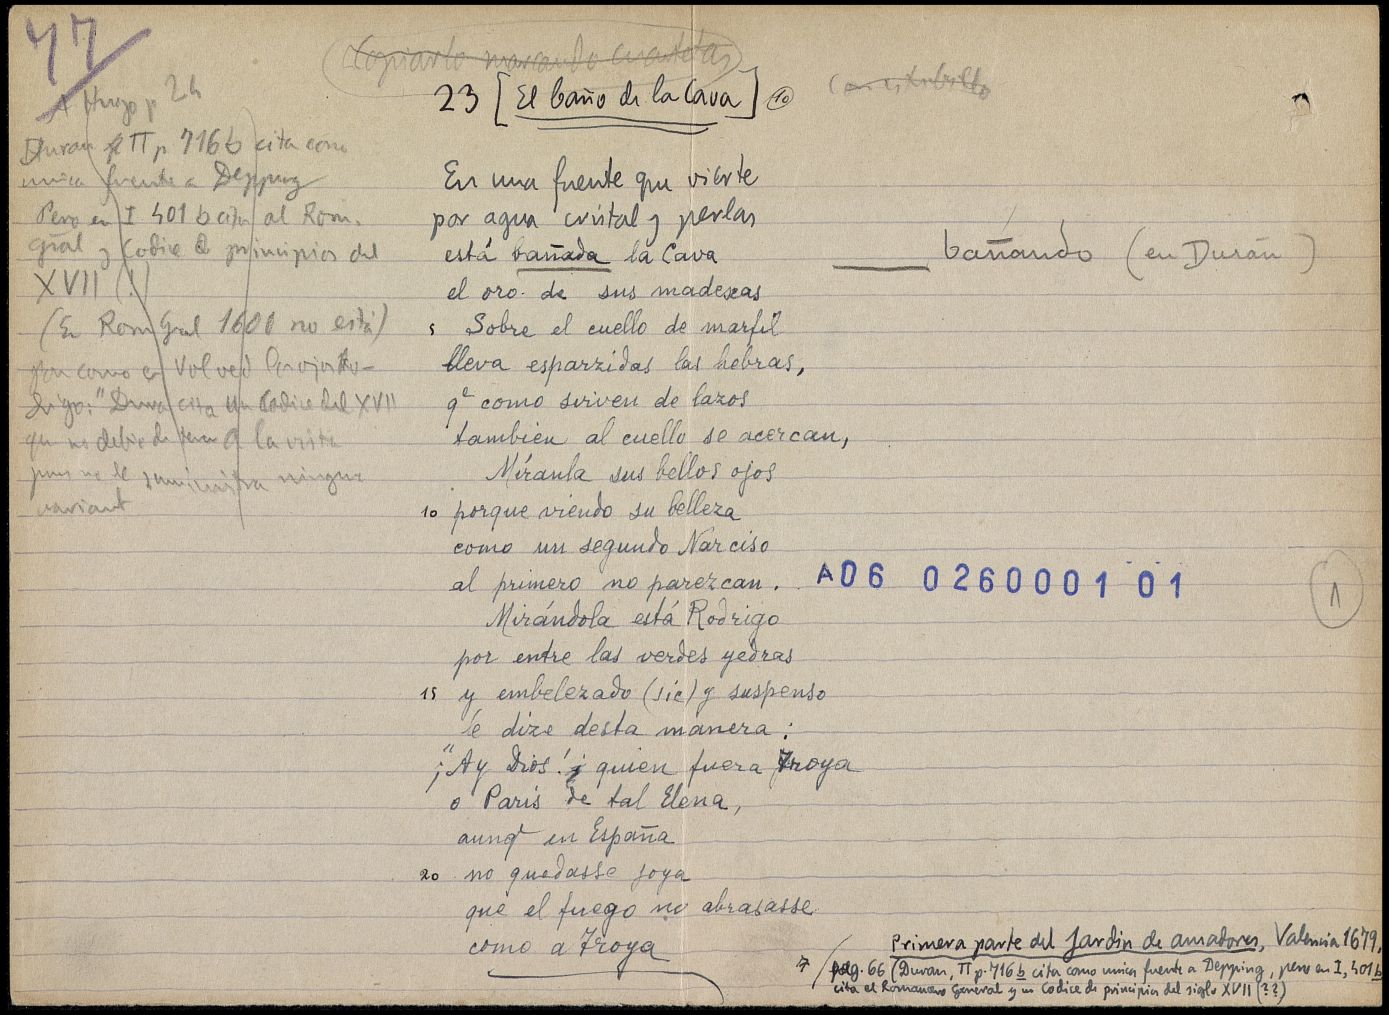 77
Copiarlo marcando cuartetas
23 [El baño de la Cava] 10
Con cuidado
A Hugo p 24
Duran II p 716b cita como
unica fuente a Depping
Pero en I 401 b cita al Rom.
gral y Codice de principios del
XVII (!)
(En Rom Gral 1600 no está)
digo: "Duran cita un Codice del XVII
que no debio de tener a la vista
pues no le suministra ninguna
variante
En una fuente que vierte
por agua cristal y perlas
está bañada la Cava
bañando (en Durán)
el oro de sus madexas
5 Sobre el cuello de marfil
lleva esparzidas las hebras,
qe como sirven de lazos
tambien al cuello se acercan,
Míranla sus bellos ojos
10 porque viendo su belleza
como un segundo Narciso
al primero no parezcan.
A06 0260001 01
1
Mirándola está Rodrigo
por entre las verdes yedras
15 y embelezado (sic) y suspenso
le dize desta manera:
"¡Ay Dios! ¡quien fuera Troya
o Paris de tal Elena,
aunqe en España
20 no quedasse joya
que el fuego no abrasasse
como a Troya
Primera parte del Jardin de amadores, Valencia 1679,
pag. 66 (Duran, II p. 716b cita como unica fuente a Depping, pero en I, 401b
cita el Romancero General y un Codice de principios del siglo XVII (??)